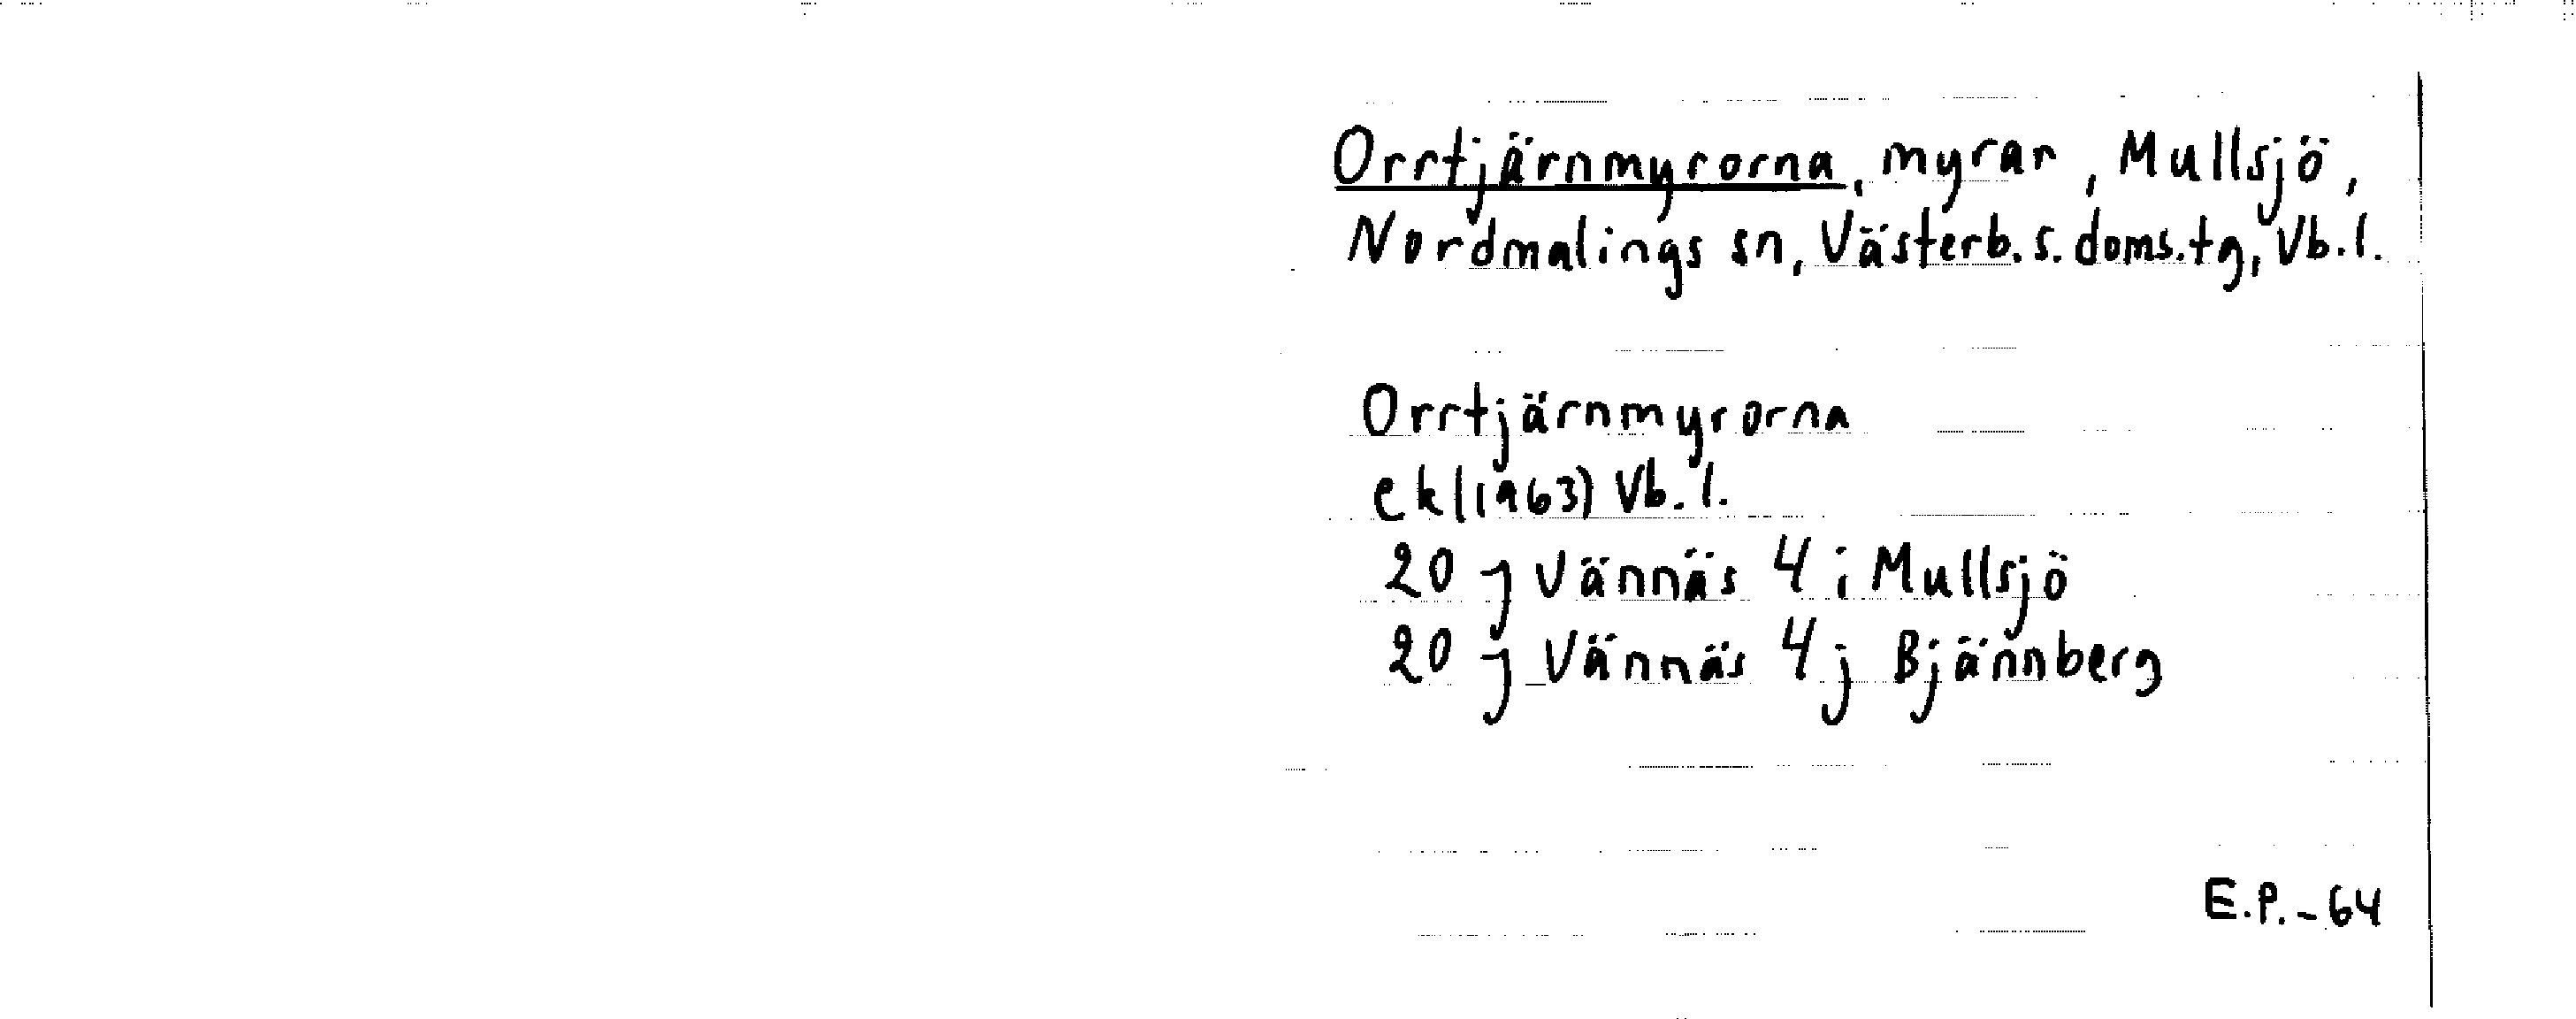 Orrtjärnmyrorna, myrar, Mullsjö,
Nordmalings sn, Västerb. s. doms. tg, Vb. l.
Orrtjärnmyrorna
ek (1963) Vb. l.
20 J Vännäs 4 i Mullsjö
20 J Vännäs 4 j Bjännberg
E.P. -64